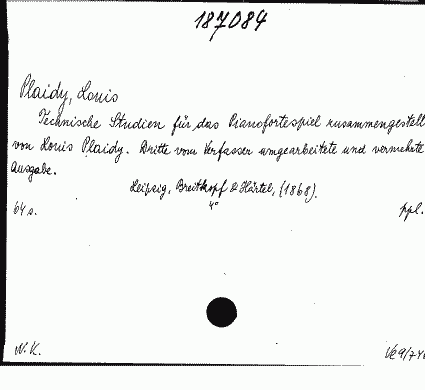 187084
Plaidy, Louis
Technische Studien für das Pianofortespiel zusammengestellt
von Louis Plaidy. Dritte vom Verfasser umgearbeitete und vermehrte
Ausgabe.
Leipzig, Breitkopf & Härtel, (1868).
4°
64 s. ppl.
N. K.